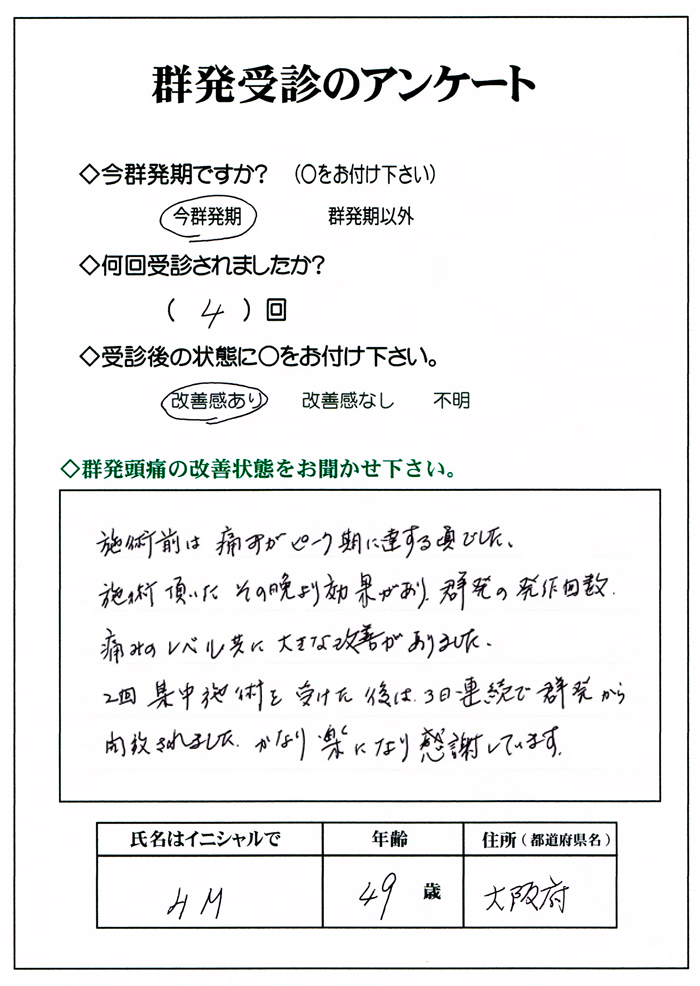 群発受診のアンケート
◇今群発期ですか? (○をお付け下さい)
今群発期 群発期以外
◇何回受診されましたか?
( 4 ) 回
◇受診後の状態に○をお付け下さい。
改善感あり 改善感なし 不明
◇群発頭痛の改善状態をお聞かせ下さい。
施術前は 痛みがピーク期に達する頃でした、
施術頂いた その晩より効果があり、群発の発作回数、
痛みのレベル共に 大きな改善がありました、
2回 集中施術を 受けた 後は、3日連続で 群発から
開放されました、かなり楽になり感謝しています。
氏名はイニシャルで 年齢 住所(都道府県名)
H M 49 歳 大阪府